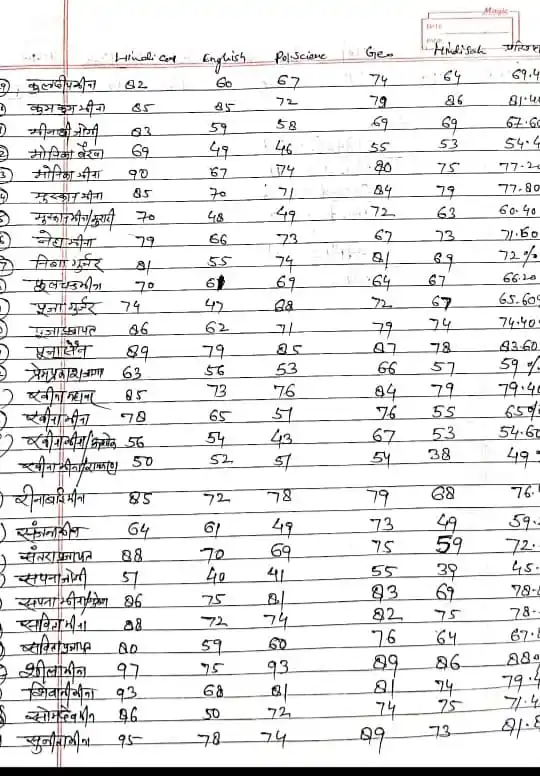 Magic
Hindi com English Pol. Science Geo Hindi Sah प्रतिशत
कुलदीप मीना 82 60 67 74 64 69.4
कुमकुम मीना 85 85 72 79 86 81.4
मीनाक्षी जोगी 83 59 58 69 69 67.60
मोनिका बैरवा 69 49 46 55 53 54.4
मोनिका मीना 90 67 74 80 75 77.2
मुस्कान मीना 85 70 71 84 79 77.80
मुस्कान मीना/मुरारी 70 48 49 72 63 60.40
नेहा मीना 79 66 73 67 73 71.60
निशा गुर्जर 81 55 74 81 69 72%
फूलचन्द मीना 70 61 69 64 67 66.20
पूजा गुर्जर 74 47 68 72 67 65.60
पूजा प्रजापत 86 62 71 79 74 74.40
पूजा सैन 89 79 85 87 78 83.60
प्रेमप्रकाश 63 56 53 66 57 59%
रवीना महावर 85 73 76 84 79 79.40
रवीना मीना 78 65 51 76 55 65%
रवीना मीना/ 56 54 43 67 53 54.60
रवीना मीना/रामफूल 50 52 51 54 38 49
रीना बारी मीना 85 72 78 79 68 76.
संजना मीना 64 61 49 73 49 59.
संतरा प्रजापत 88 70 69 75 59 72.
सपना जोगी 51 40 41 55 39 45.
सपना मीना/ 86 75 81 83 69 78.
सविता मीना 88 72 74 82 75 78.
सविता प्रजापत 80 59 60 76 64 67.8
शीला मीना 97 75 93 89 86 88.
शिवानी मीना 93 68 81 81 74 79.4
सोमदेव मीना 86 50 72 74 75 71.4
सुनीता मीना 95 78 74 89 73 81.8